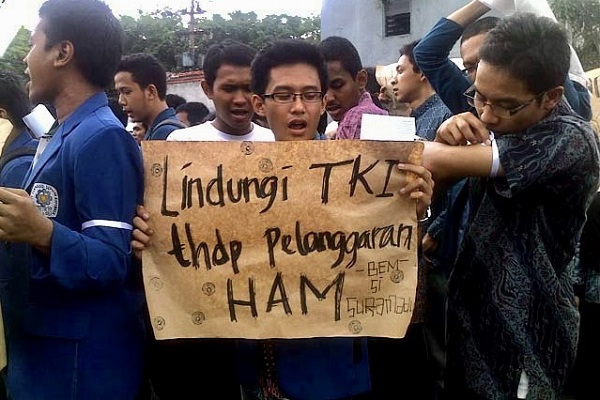 Lindungi TKI
thdp Pelanggaran
HAM
-BEM-
SI